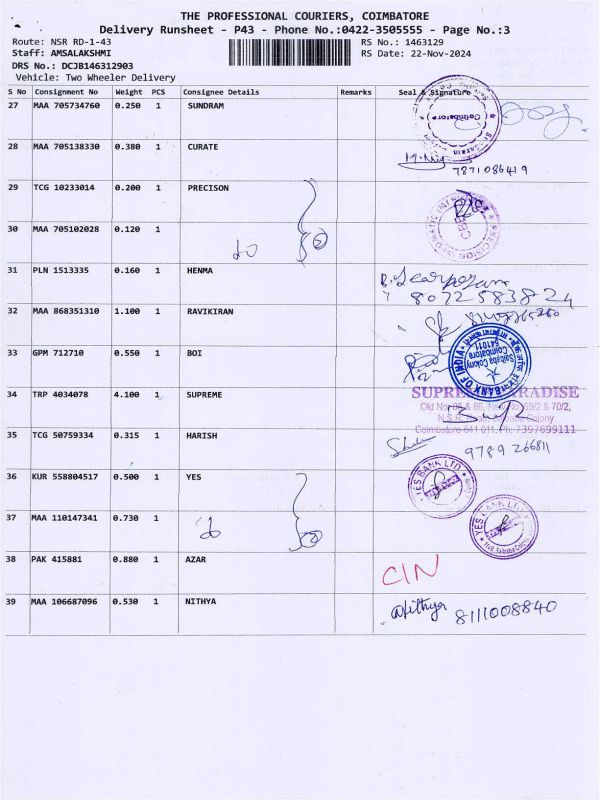 THE PROFESSIONAL COURIERS, COIMBATORE
Delivery Runsheet - P43 - Phone No.:0422-3505555 - Page No.:3
Route: NSR RD-1-43 RS No.: 1463129
Staff: AMSALAKSHMI RS Date: 22-Nov-2024
DRS No.: DCJB146312903
Vehicle: Two Wheeler Delivery
S No Consignment No Weight PCS Consignee Details Remarks Seal & Signature
27 MAA 705734760 0.250 1 SUNDRAM
Coimbatore
28 MAA 705138330 0.380 1 CURATE
7871086419
29 TCG 10233014 0.200 1 PRECISON
30 MAA 705102028 0.120 1
do
31 PLN 1513335 0.160 1 HENMA
8072583824
32 MAA 868351310 1.100 1 RAVIKIRAN
33 GPM 712710 0.550 1 BOI
BANK OF INDIA
Saibaba Colony
Coimbatore
641011
34 TRP 4034078 4.100 1 SUPREME
35 TCG 50759334 0.315 1 HARISH
Coimbatore 641 011. Ph: 7397699111
9789266811
36 KUR 558804517 0.500 1 YES
YES BANK LTD
37 MAA 110147341 0.730 1
do
YES BANK LTD
38 PAK 415881 0.880 1 AZAR
CIN
39 MAA 106687096 0.530 1 NITHYA
Nithya 8111008840